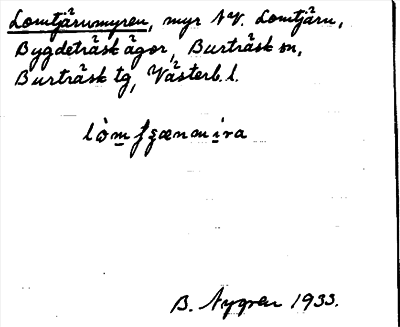 Lomtjärnmyren, myr NV. Lomtjärn,
Bygdeträsk ägor, Burträsk sn,
Burträsk tg, Västerb. l.
B. Nygren 1933.